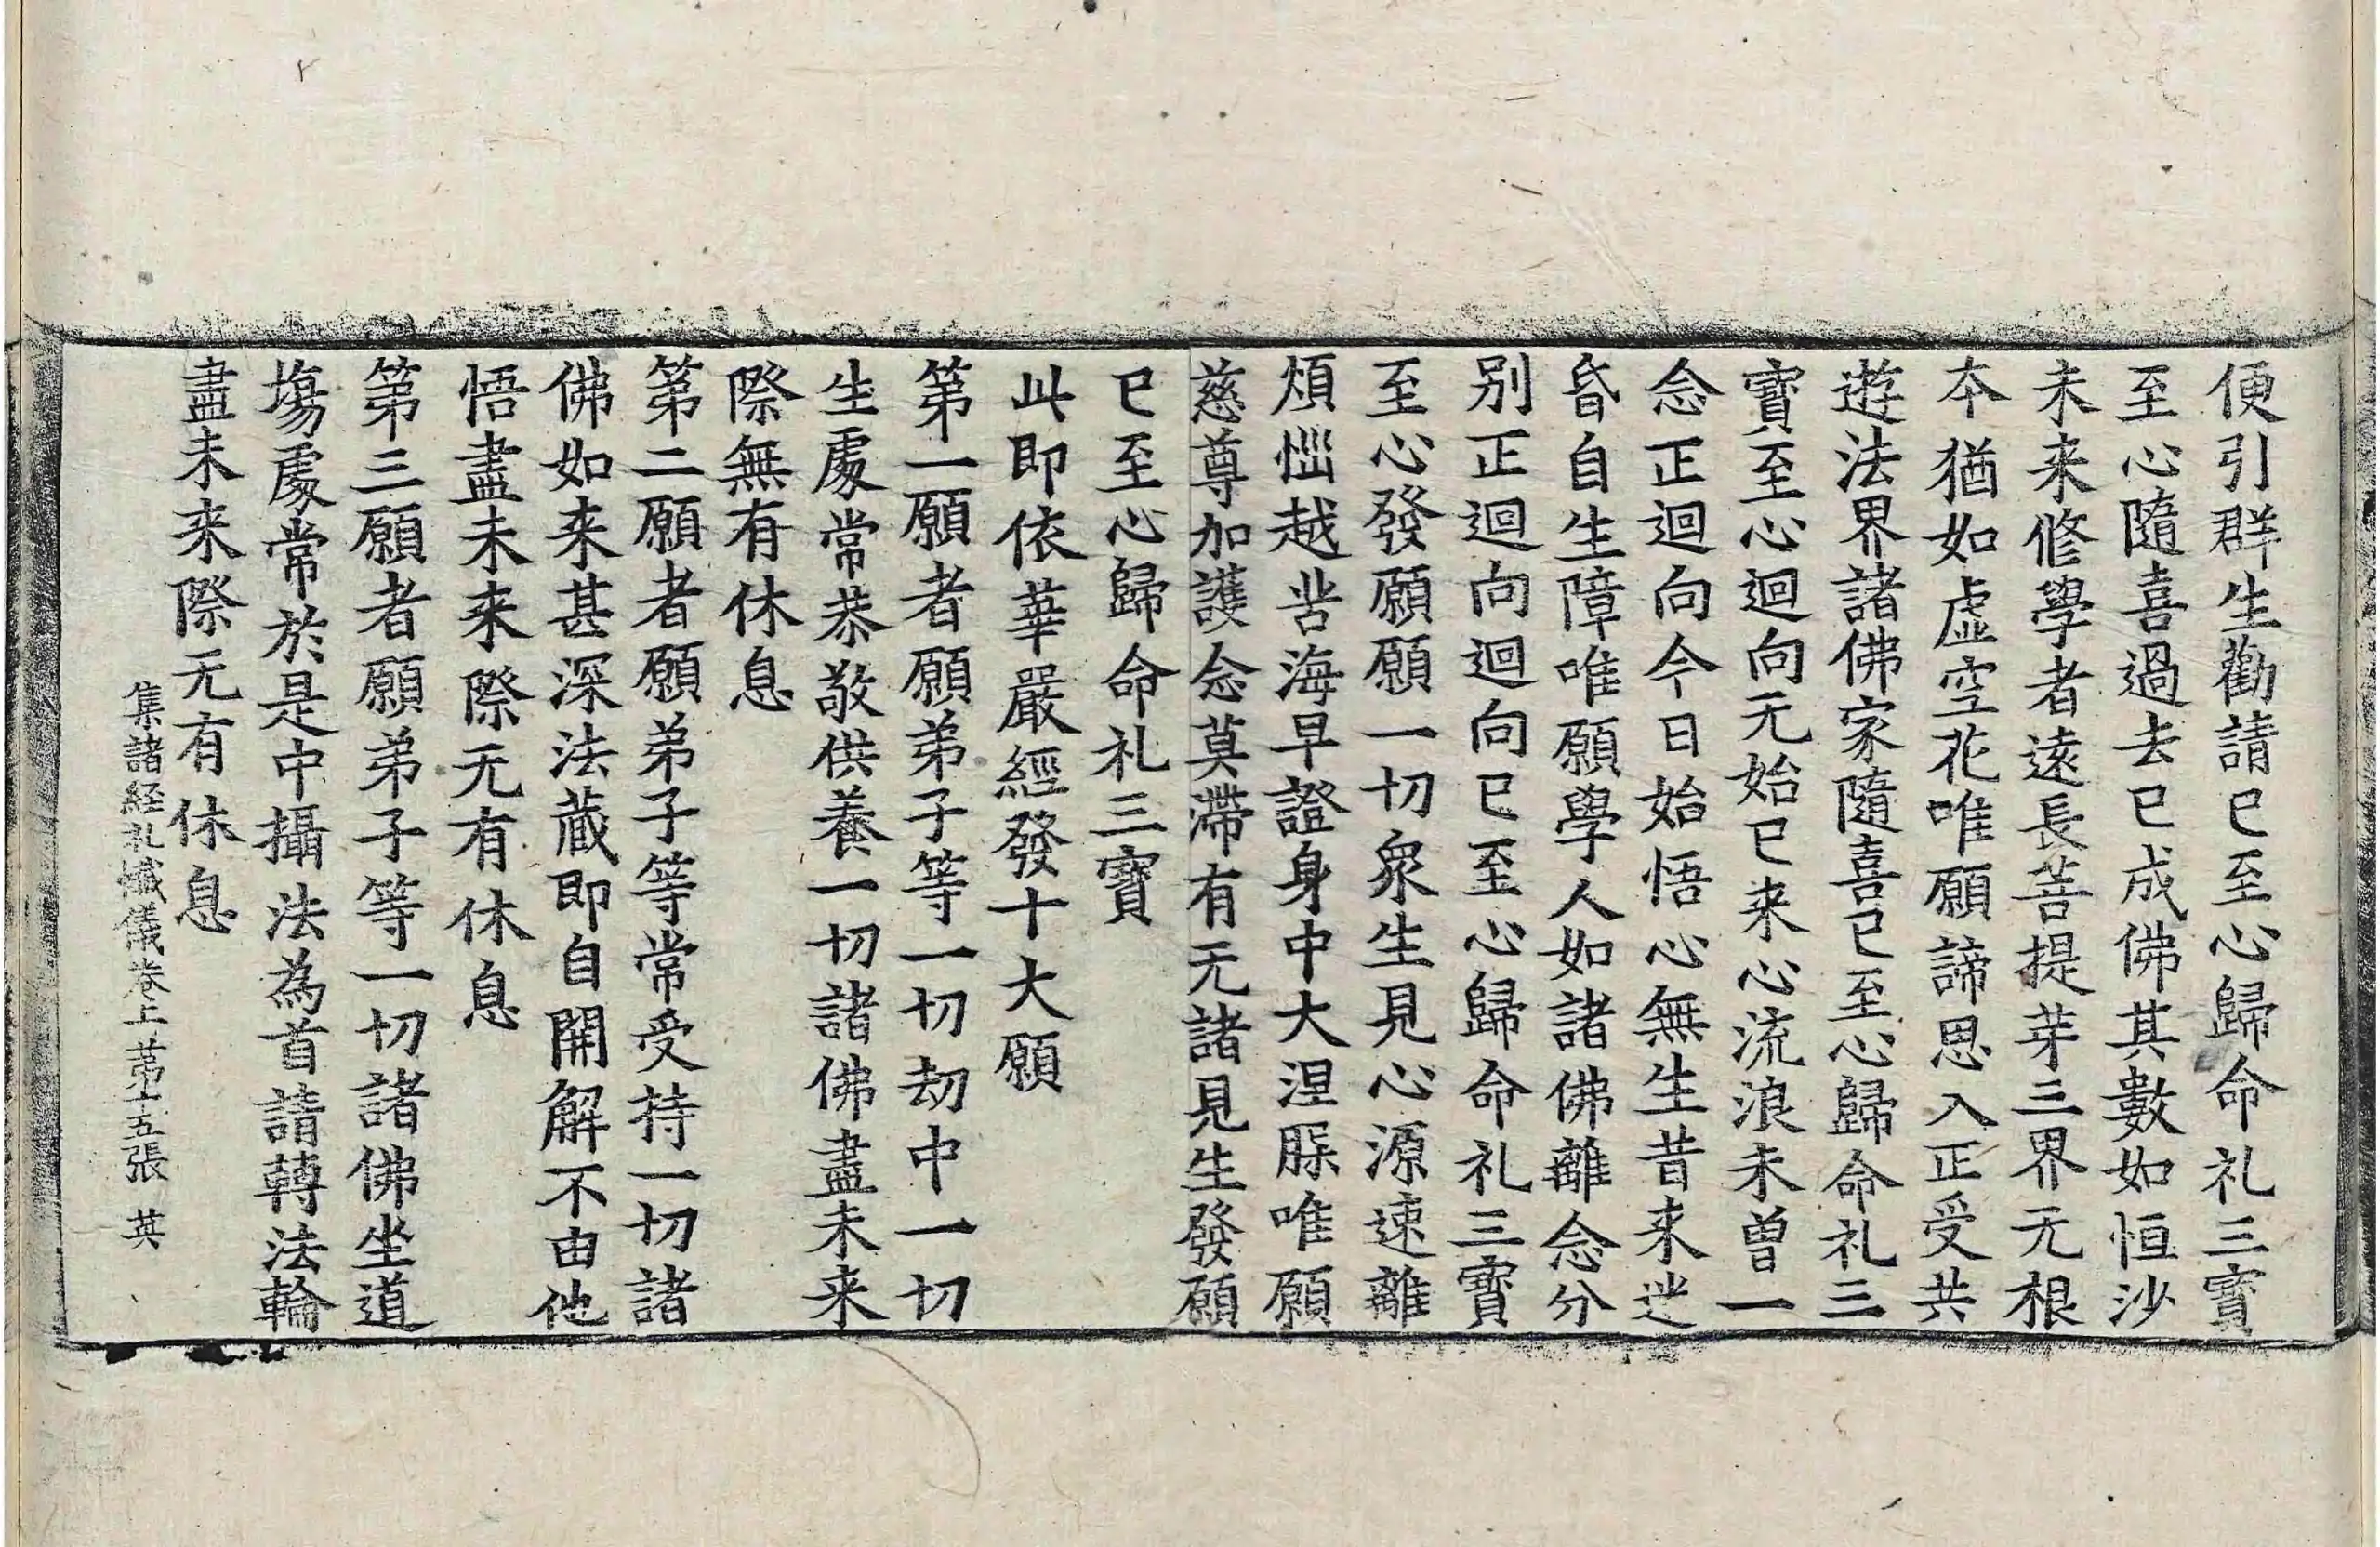 便引群生勸請已至心歸命礼三寶
至心隨喜過去已成佛其數如恒沙
未来修學者遠長菩提芽三界无根
本猶如虛空花唯願諦思入正受共
遊法界諸佛家隨喜已至心歸命礼三
寶至心迴向无始已来心流浪未曾一
念正迴向今日始悟心無生昔来迷
昏自生障唯願學人如諸佛離念分
别正迴向迴向已至心歸命礼三寶
至心發願願一切衆生見心源速離
煩惱越苦海早證身中大涅槃唯願
慈尊加護念莫滯有无諸見生發願
已至心歸命礼三寶
此即依華嚴經發十大願
第一願者願弟子等一切劫中一切
生處常恭敬供養一切諸佛盡未来
際無有休息
第二願者願弟子等常受持一切諸
佛如来甚深法藏即自開解不由他
悟盡未来際无有休息
第三願者願弟子等一切諸佛坐道
塲處常於是中攝法為首請轉法輪
盡未来際无有休息
集諸経礼懺儀卷上第十五張 英